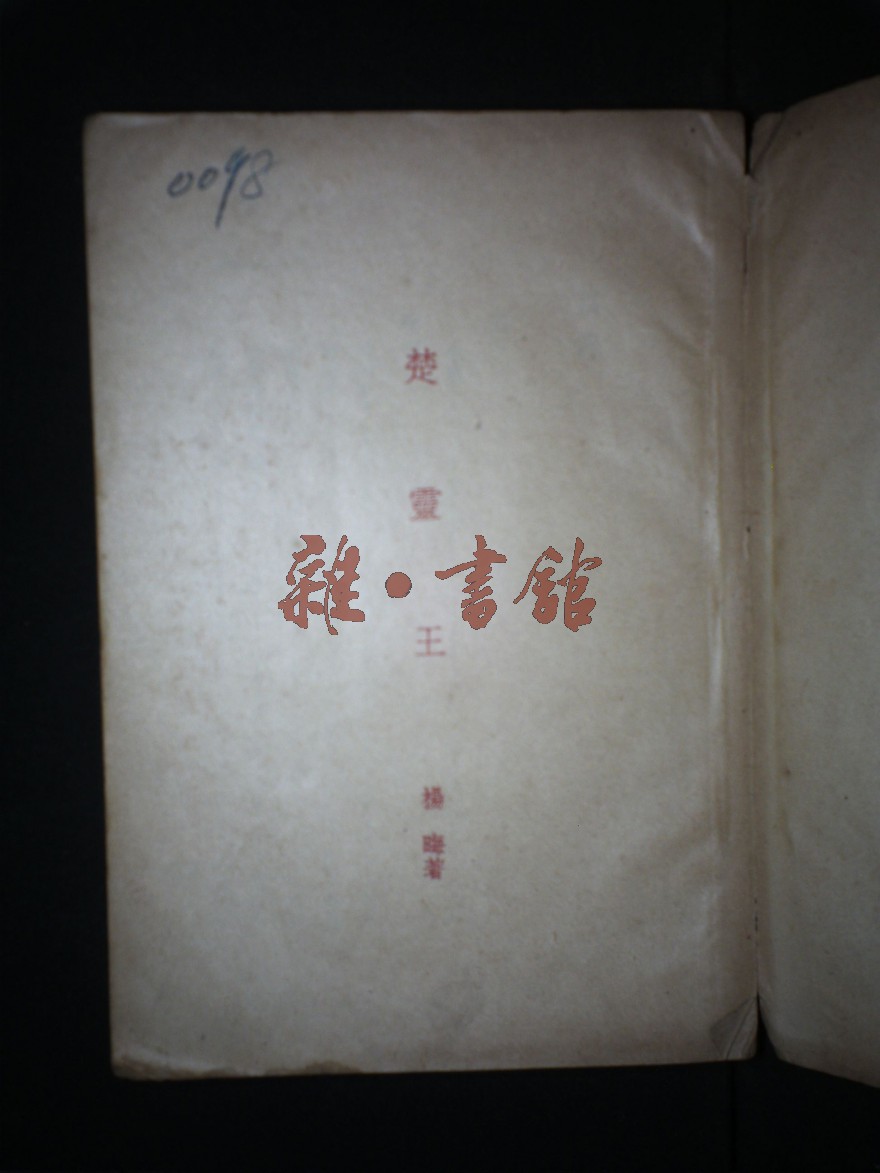 0098
楚靈王
雜·書館
楊晦著